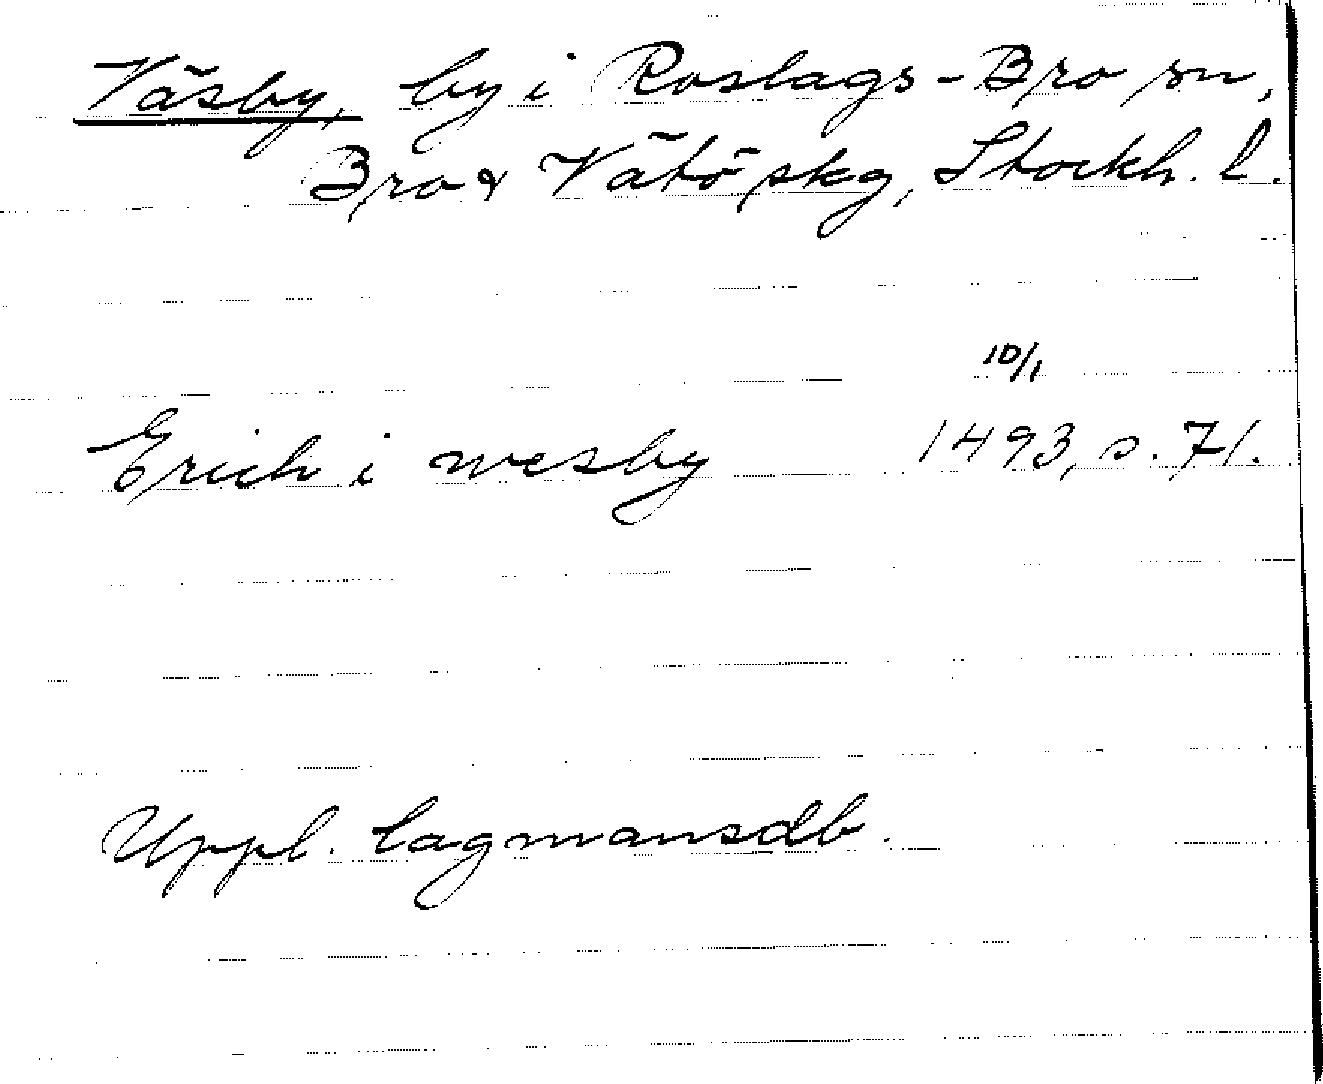 Väsby, by i Roslags-Bro sn,
Bro & Vätö skg, Stockh. l.
10/1
Erich i wesby 1493, s. 71.
Uppl. lagmansdb.